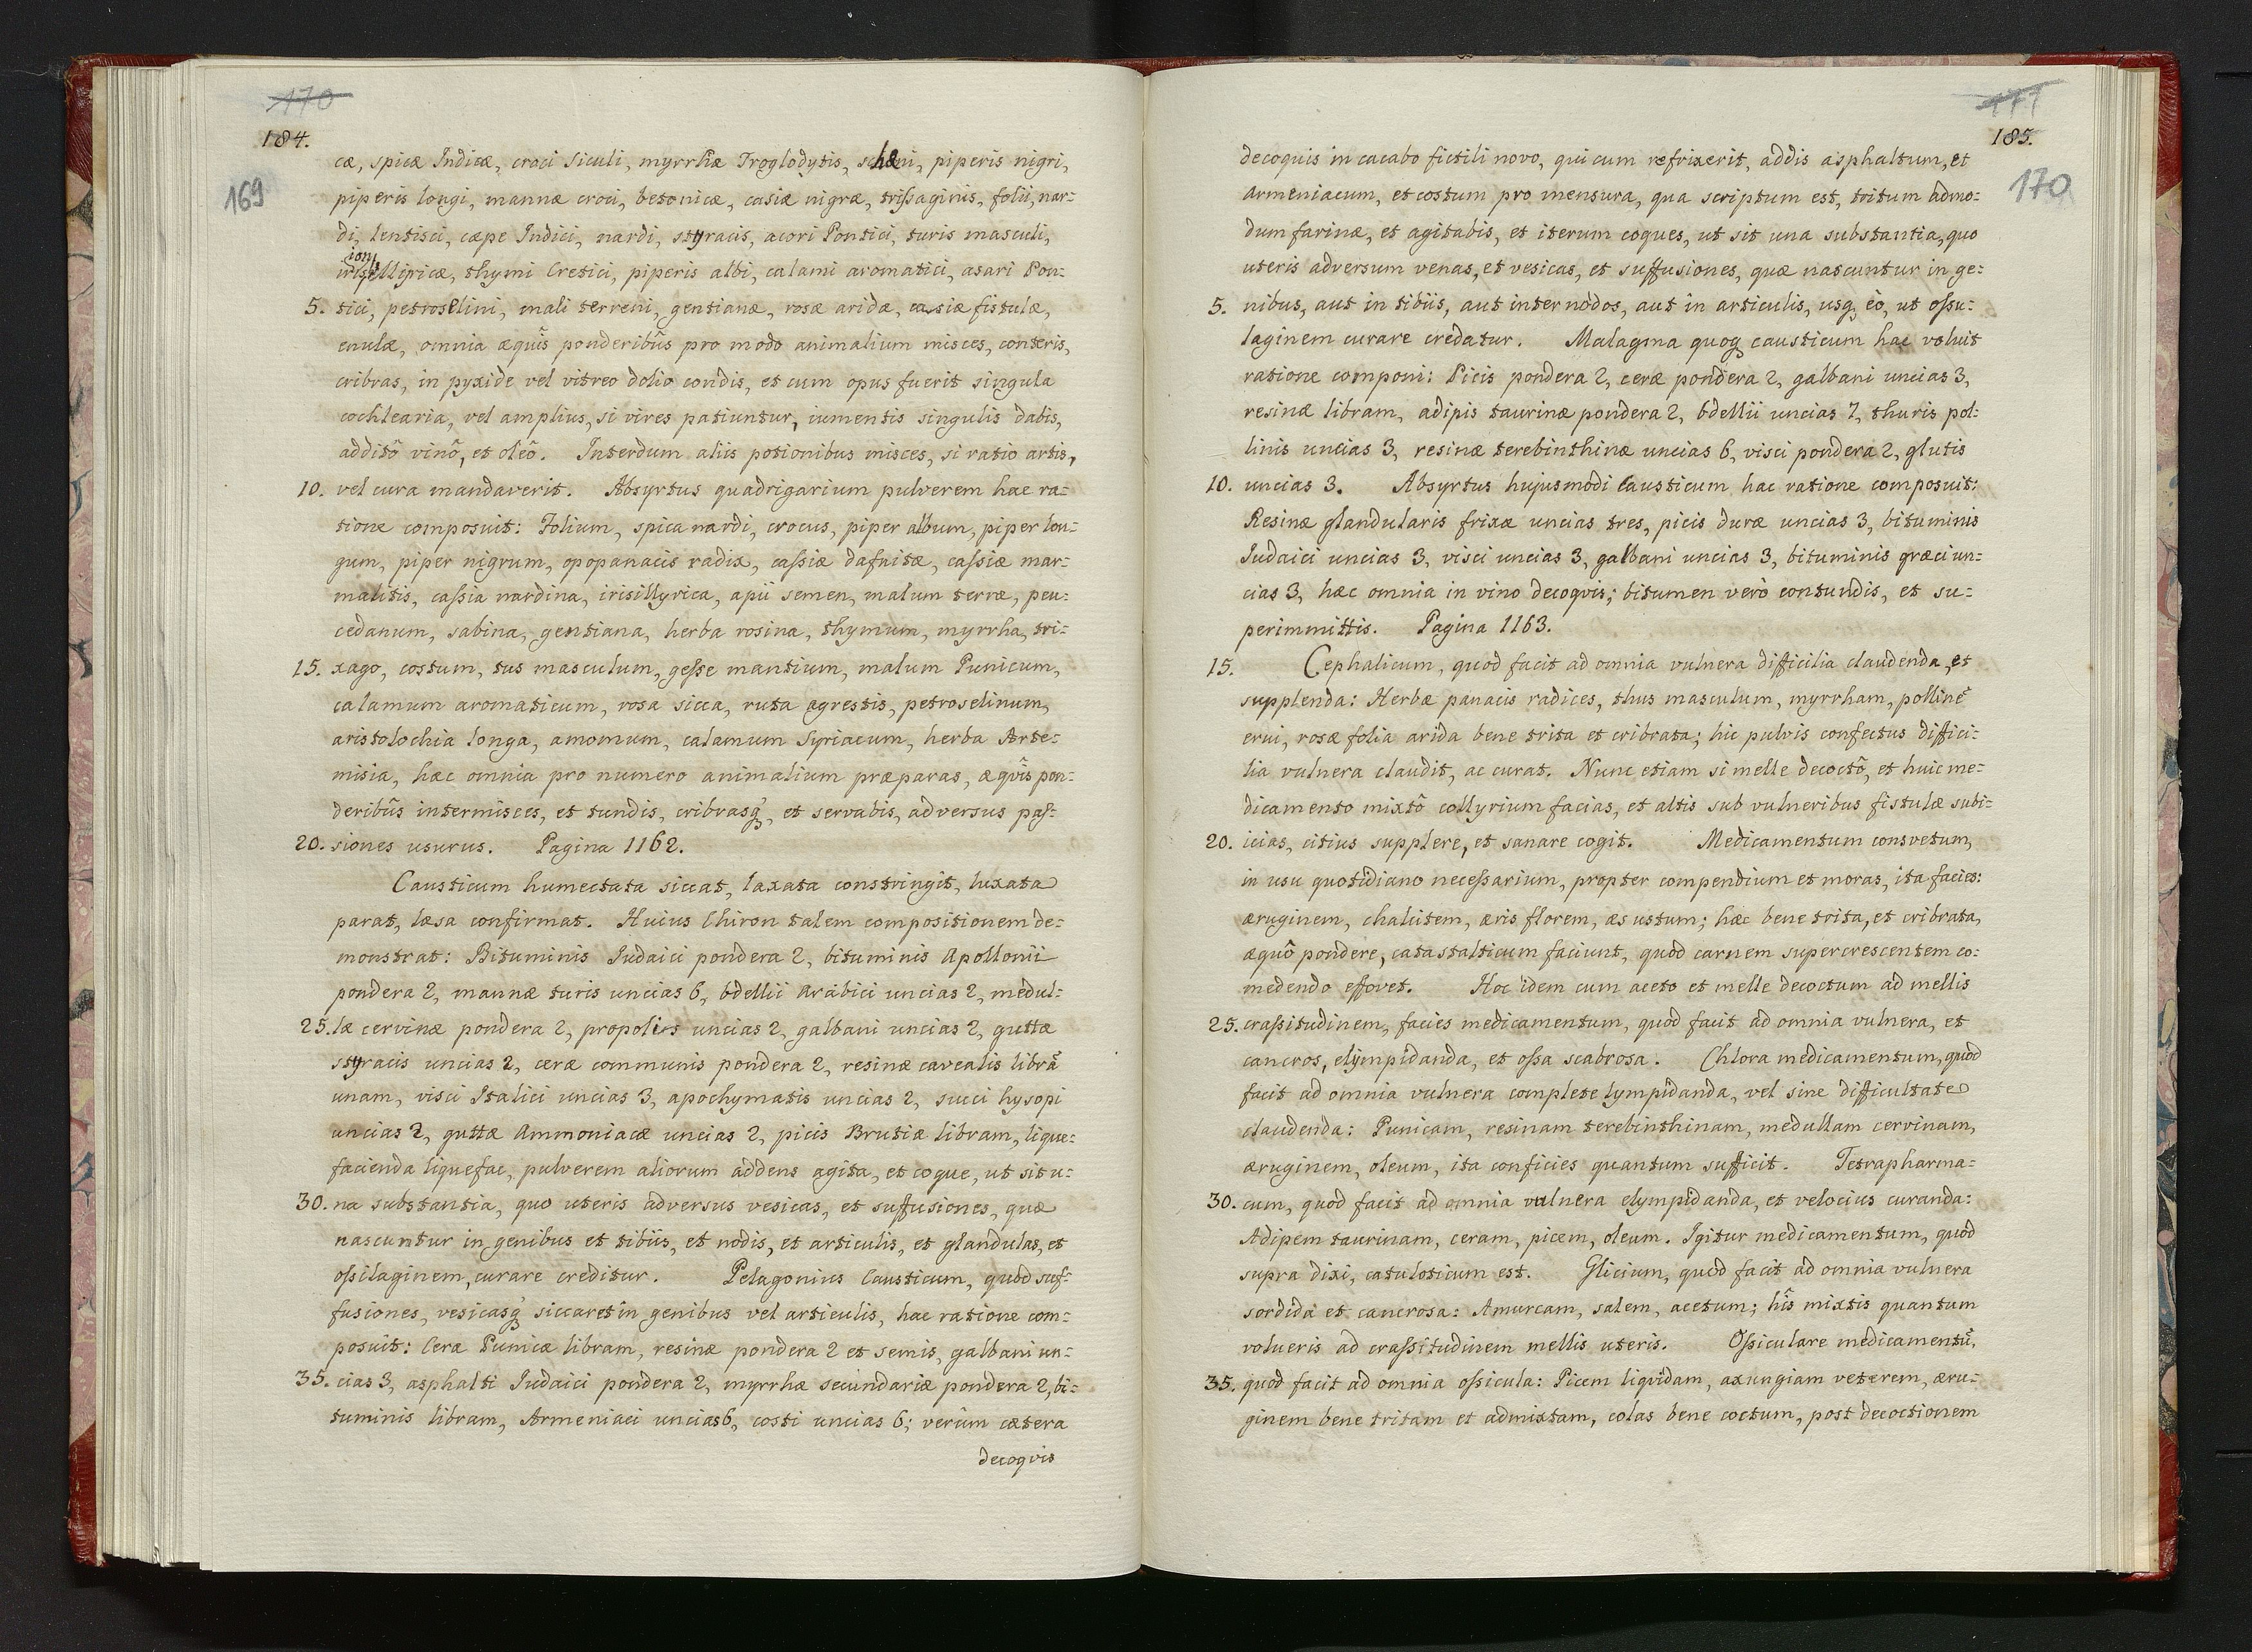 170
184.
169
cæ, spicæ Indicæ, croci Siculi, myrrhæ Troglodytis, schæni, piperis nigri,
piperis longi, mannæ croci, betonicæ, casiæ nigræ, trissaginis, folii, nar=
di, lentisci, cæpe Indici, nardi, styracis, acori Pontici, turis masculi,
illiricæ, thymi Cretici, piperis albi, calami aromatici, asari Pon=
5. tici, petroselini, mali terreni, gentianæ, rosæ aridæ, casiæ fistulæ,
enulæ, omnia æquîs ponderibûs pro modo animalium misces, conteris,
cribras, in pyxide vel vitreo dolio condis, et cum opus fuerit singula
cochlearia, vel amplius, si vires patiuntur, iumentis singulis dabis,
additô vinô, et oleô. Interdum aliis potionibus misces, si ratio artis,
10. vel cura mandaverit. Absyrtus quadrigarium pulverem hac ra=
tione composuit: Folium, spica nardi, crocus, piper album, piper lon=
gum, piper nigrum, opopanacis radix, cassiæ dafnitæ, cassiæ mar=
malitis, cassia nardina, irisillyrica, apii semen, malum terræ, peu=
cedanum, sabina, gentiana, herba rosina, thymum, myrrha, tri=
15. xago, costum, tus masculum, gesse mantium, malum Punicum,
calamum aromaticum, rosa sicca, ruta agrestis, petroselinum,
aristolochia longa, amomum, calamum Syriacum, herba Arte=
misia, hæc omnia pro numero animalium præparas, æqvîs pon=
deribûs intermisces, et tundis, cribrasq́, et servabis, adversus pas=
20. siones usurus. Pagina 1162.
Causticum humectata siccat, laxata constringit, luxata
parat, læsa confirmat. Huius Chiron talem compositionem de=
monstrat: Bituminis Iudaici pondera 2, bituminis Apollonii
pondera 2, mannæ turis uncias 6, bdellii Arabici uncias 2, medul=
25. læ cervinæ pondera 2, propolis uncias 2, galbani uncias 2, guttæ
styracis uncias 2, ceræ communis pondera 2, resinæ cavealis librã
unam, visci Italici uncias 3, apochymatis uncias 2, succi hysopi
uncias 2, guttæ Ammoniacæ uncias 2, picis Brutiæ libram, lique=
facienda liquefac, pulverem aliorum addens agita, et coque, ut sit u=
30. na substantia, quo uteris adversus vesicas, et suffusiones, quæ
nascuntur in genibus et tibiis, et nodis, et articulis, et glandulas, et
ossilaginem, curare creditur. Pelagonius Causticum, quod suf=
fusiones, vesicasq́ siccaret in genibus vel articulis, hac ratione com=
posuit: Ceræ Punicæ libram, resinæ pondera 2 et semis, galbani un=
35. cias 3, asphalti Iudaici pondera 2, myrrhæ secundariæ pondera 2, bi=
tuminis libram, Armeniaci uncias 6, costi uncias 6; verùm cætera
decoqvis
171
185.
170
decoquis in cacabo fictili novo, qui cum refrixerit, addis asphaltum, et
Armeniacum, et costum pro mensura, qua scriptum est, tritum admo=
dum farinæ, et agitabis, et iterum coques, ut sit una substantia, quo
uteris adversum venas, et vesicas, et suffusiones, quæ nascuntur in ge=
5. nibus, aut in tibiis, aut internodos, aut in articulis, usq́ eò, ut ossu=
laginem curare credatur. Malagma quoq́ causticum hac voluit
ratione componi: Picis pondera 2, ceræ pondera 2, galbani uncias 3,
resinæ libram, adipis taurinæ pondera 2, bdellii uncias 7, thuris pol=
linis uncias 3, resinæ terebinthinæ uncias 6, visci pondera 2, glutis
10. uncias 3. Absyrtus hujusmodi Causticum hac ratione composuit:
Resinæ glandularis frixæ uncias tres, picis duræ uncias 3, bituminis
Iudaici uncias 3, visci uncias 3, galbani uncias 3, bituminis græci un=
cias 3, hæc omnia in vino decoqvis; bitumen verò contundis, et su=
perimmittis. Pagina 1163.
15. Cephalicum, quod facit ad omnia vulnera difficilia claudenda, et
supplenda: Herbæ panacis radices, thus masculum, myrrham, pollinẽ
erui, rosæ folia arida bene trita et cribrata; hic pulvis confectus diffici=
lia vulnera claudit, ac curat. Nunc etiam si melle decoctô, et huic me=
dicamento mixtô collyrium facias, et altis sub vulneribus fistulæ subi=
20. icias, citius supplere, et sanare cogit. Medicamentum consvetum,
in usu quotidiano necessarium, propter compendium et moras, ita facies:
æruginem, chalcitem, æris florem, æs ustum; hæc bene trita, et cribrata,
æquô pondere, catastalticum faciunt, quod carnem supercrescentem co=
medendo effovet. Hoc idem cum aceto et melle decoctum ad mellis
25. crassitudinem, facies medicamentum, quod facit ad omnia vulnera, et
cancros, elympidanda, et ossa scabrosa. Chlora medicamentum, quod
facit ad omnia vulnera complete lympidanda, vel sine difficultate
claudenda: Punicam, resinam terebinthinam, medullam cervinam,
æruginem, oleum, ita conficies quantum sufficit. Tetrapharma=
30. cum, quod facit ad omnia vulnera elympidanda, et velocius curanda:
Adipem taurinam, ceram, picem, oleum. Igitur medicamentum, quod
supra dixi, catuloticum est. Glicium, quod facit ad omnia vulnera
sordida et cancrosa: Amurcam, salem, acetum; hîs mixtis quantum
volueris ad crassitudinem mellis uteris. Ossiculare medicamentũ,
35. quod facit ad omnia ossicula: Picem liqvidam, axungiam veterem, æru=
ginem bene tritam et admixtam, colas bene coctum, post decoctionem